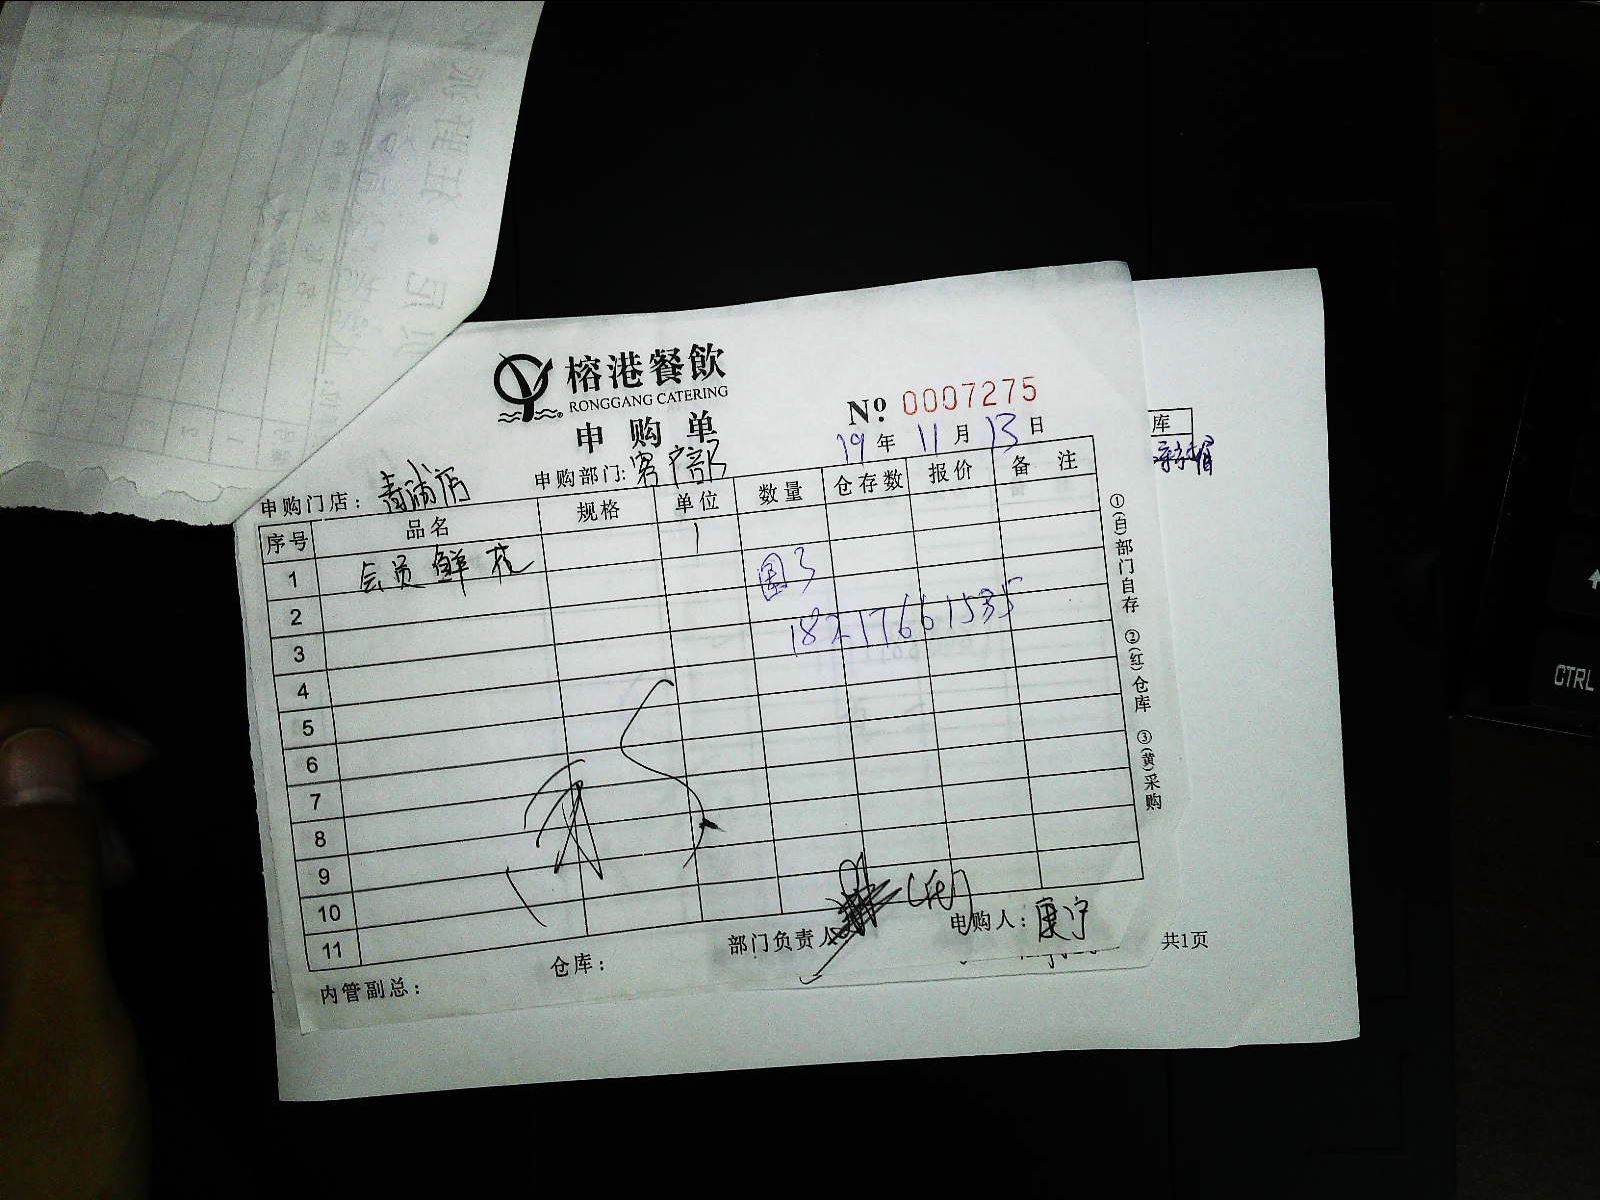 榕港餐飲
RONGGANG CATERING
申购单
№ 0007275
19年 11月 13日
申购门店：青浦店 申购部门：客户部
序号 品名 规格 单位 数量 仓存数 报价 备注
1 会员鲜花 1
2
3
4
5
6
7
8
9
10
11
18217661535
①(白)部门自存 ②(红)仓库 ③(黄)采购
内管副总： 仓库： 部门负责人 申购人：康宁
库
共1页
CTRL